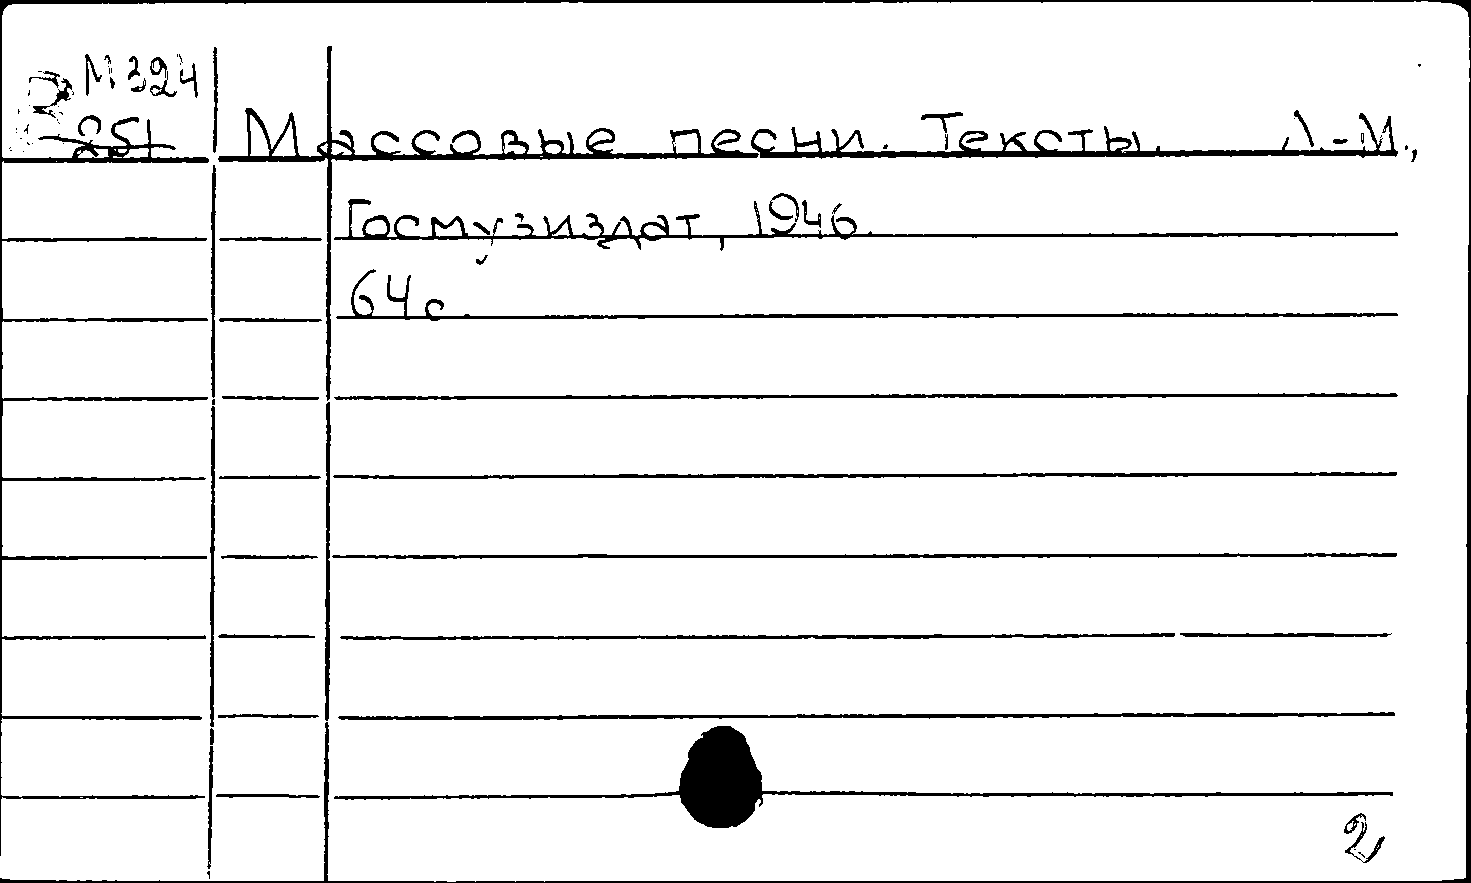 М324
251
Массовые песни. Тексты. Л.-М.,
Госмузиздат, 1946.
64 с.
2